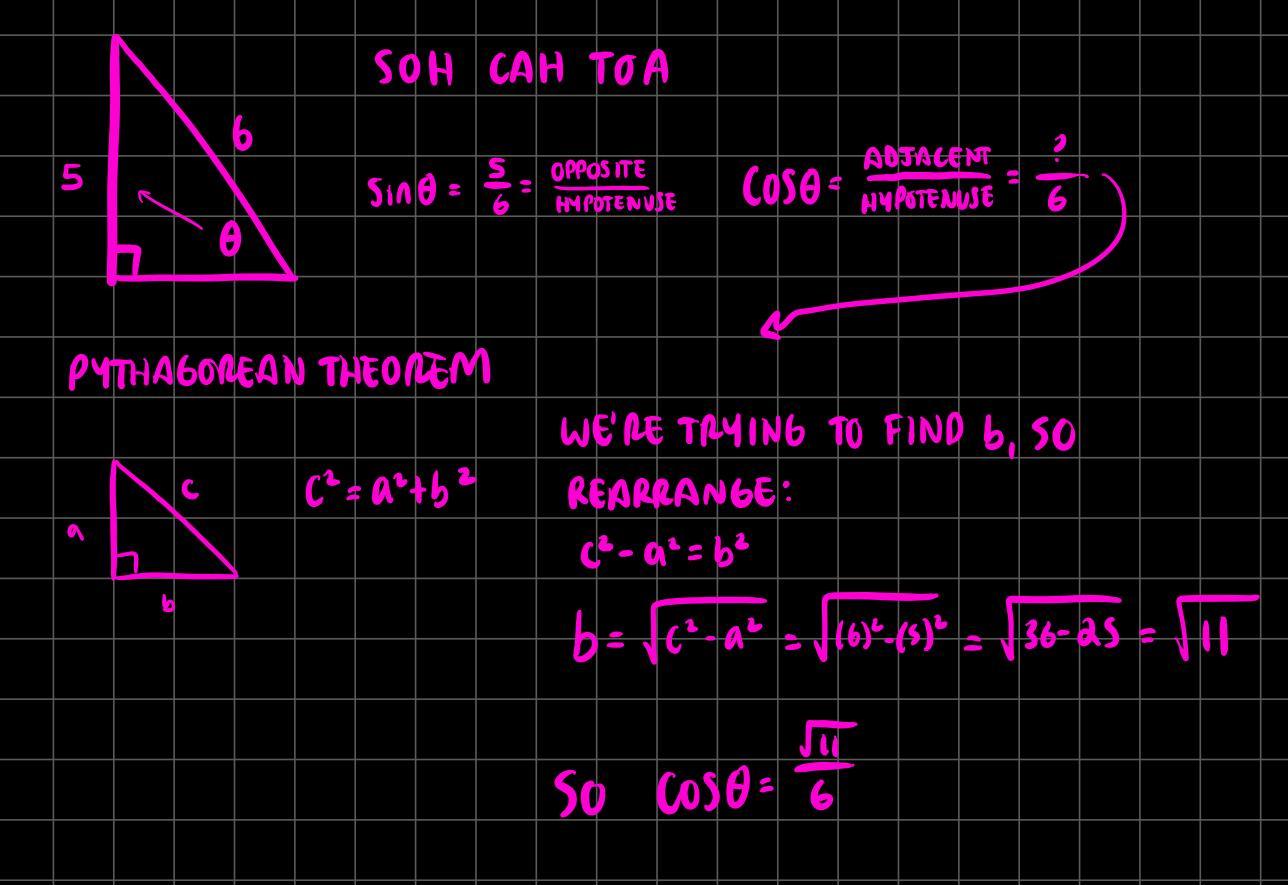 SOH CAH TOA
6
5
θ
sinθ = 5/6 = OPPOSITE/HYPOTENUSE
COSθ = ADJACENT/HYPOTENUSE = ?/6
PYTHAGOREAN THEOREM
c
a
b
C² = a²+b²
WE'RE TRYING TO FIND b, SO
REARRANGE:
c² - a² = b²
b = √(c² - a²) = √((6)² - (5)²) = √(36-25) = √11
SO COSθ = √11/6